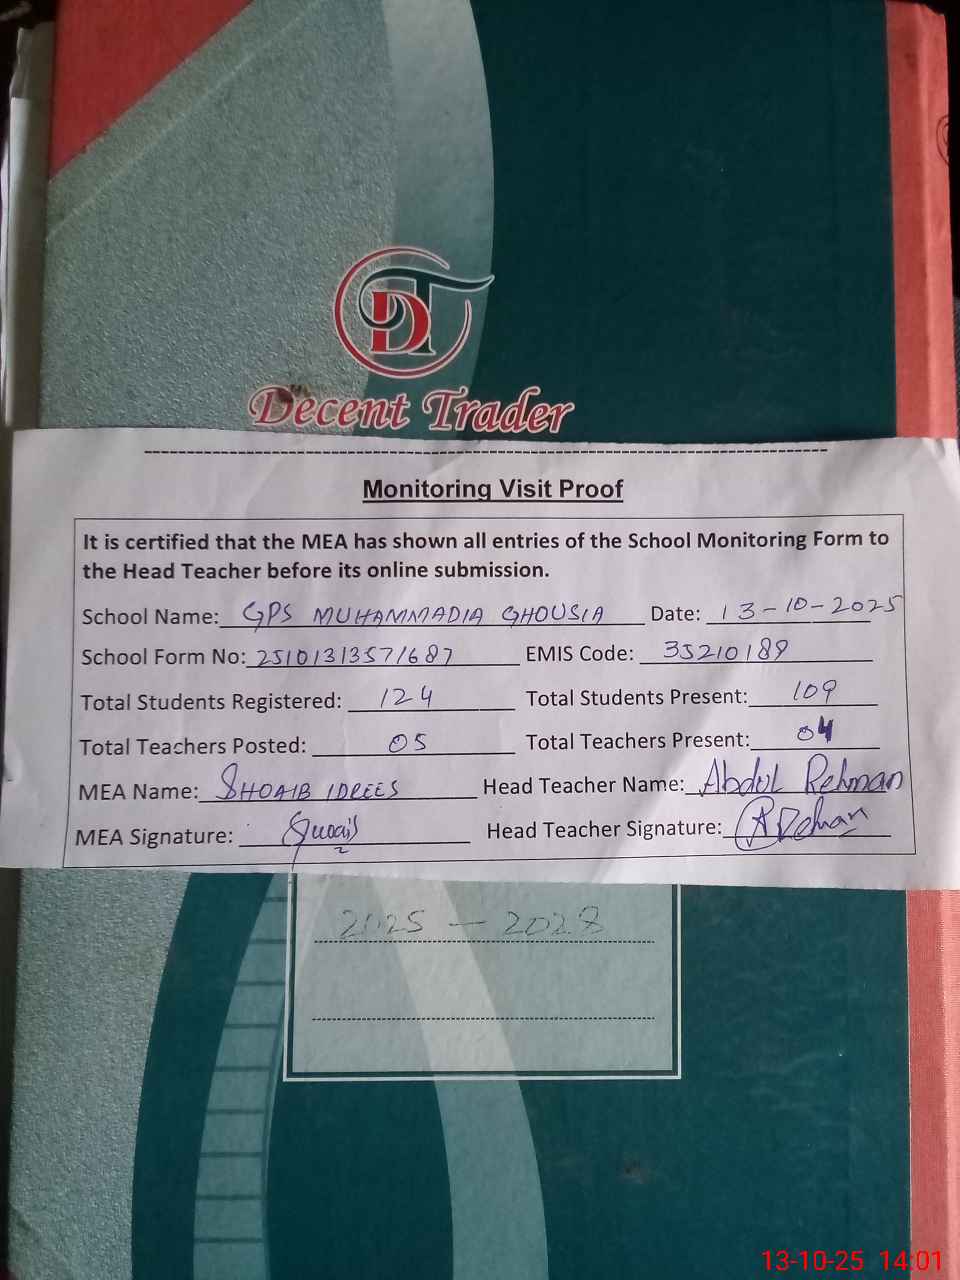 DT
Decent Trader
Monitoring Visit Proof
It is certified that the MEA has shown all entries of the School Monitoring Form to
the Head Teacher before its online submission.
School Name: GPS MUHAMMADIA GHOUSIA Date: 13-10-2025
School Form No: 25101313571687 EMIS Code: 35210189
Total Students Registered: 124 Total Students Present: 109
Total Teachers Posted: 05 Total Teachers Present: 04
MEA Name: SHOAIB IDREES Head Teacher Name: Abdul Rehman
MEA Signature: Shoaib Head Teacher Signature: ARehman
2025 - 2028
13-10-25 14:01